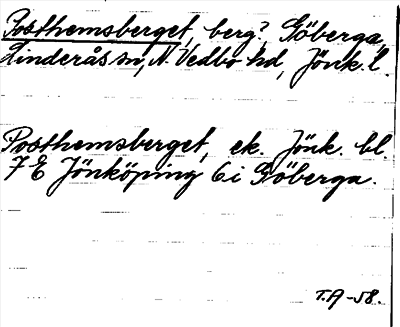 Posthemsberget, berg? Göberga,
Linderås sn, N. Vedbo hd, Jönk. l.
Posthemsberget, ek. Jönk. bl.
7 E Jönköping 6i Göberga.
T.A -58.